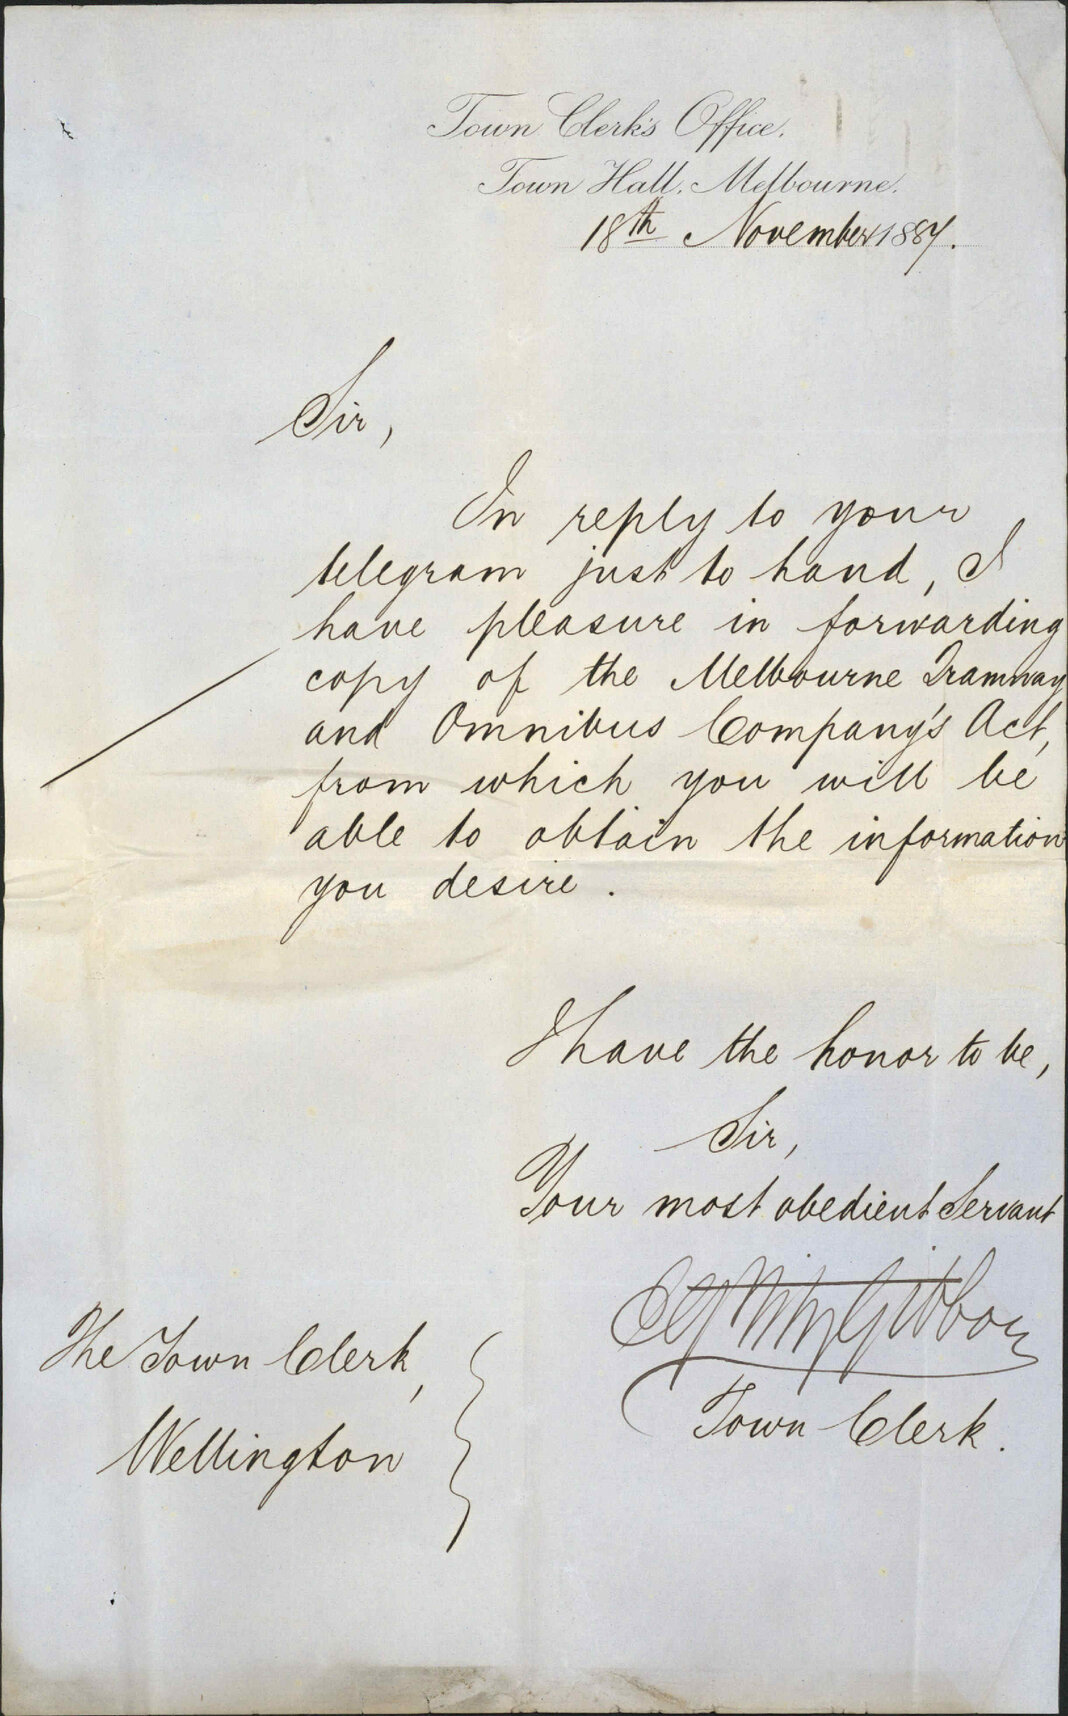 Town Clerk's Office,
Town Hall, Melbourne.
18th November 1887.
Sir,
In reply to your
telegram just to hand, I
have pleasure in forwarding
copy of the Melbourne Tramway
and Omnibus Company's Act,
from which you will be
able to obtain the information
you desire.
I have the honor to be,
Sir,
Your most obedient Servant
FitzGibbon
Town Clerk.
The Town Clerk,
Wellington